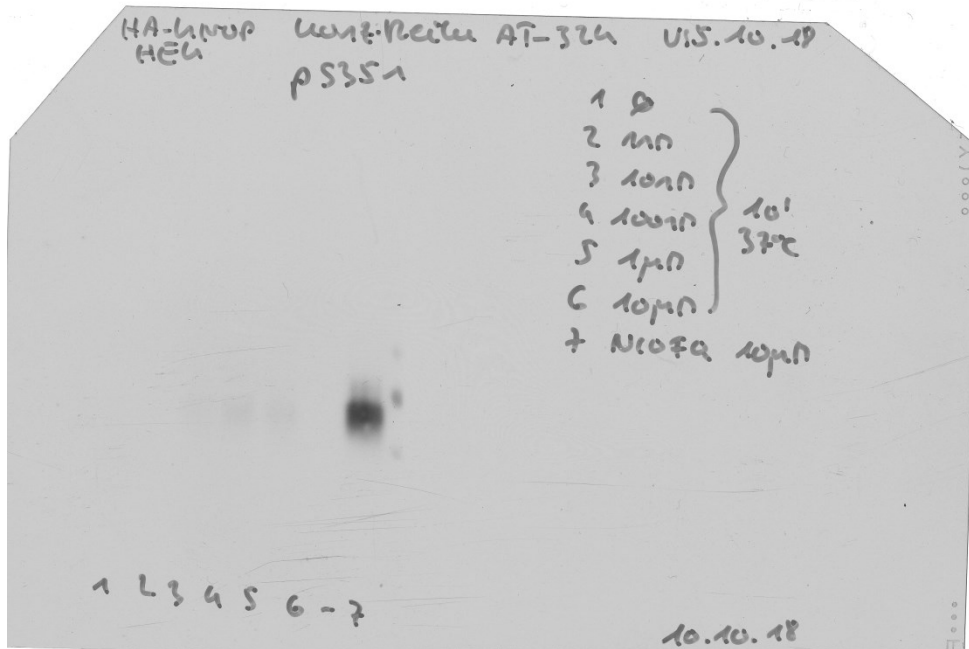 HA-hNOP Konz.Reihe AT-324 v. 5.10.18
HEK
pS351
1 Ø
2 1nM
3 10nM
4 100nM
5 1µM
6 10µM
10' 37°C
7 N/OFQ 10µM
1 2 3 4 5 6 - 7
10.10.18